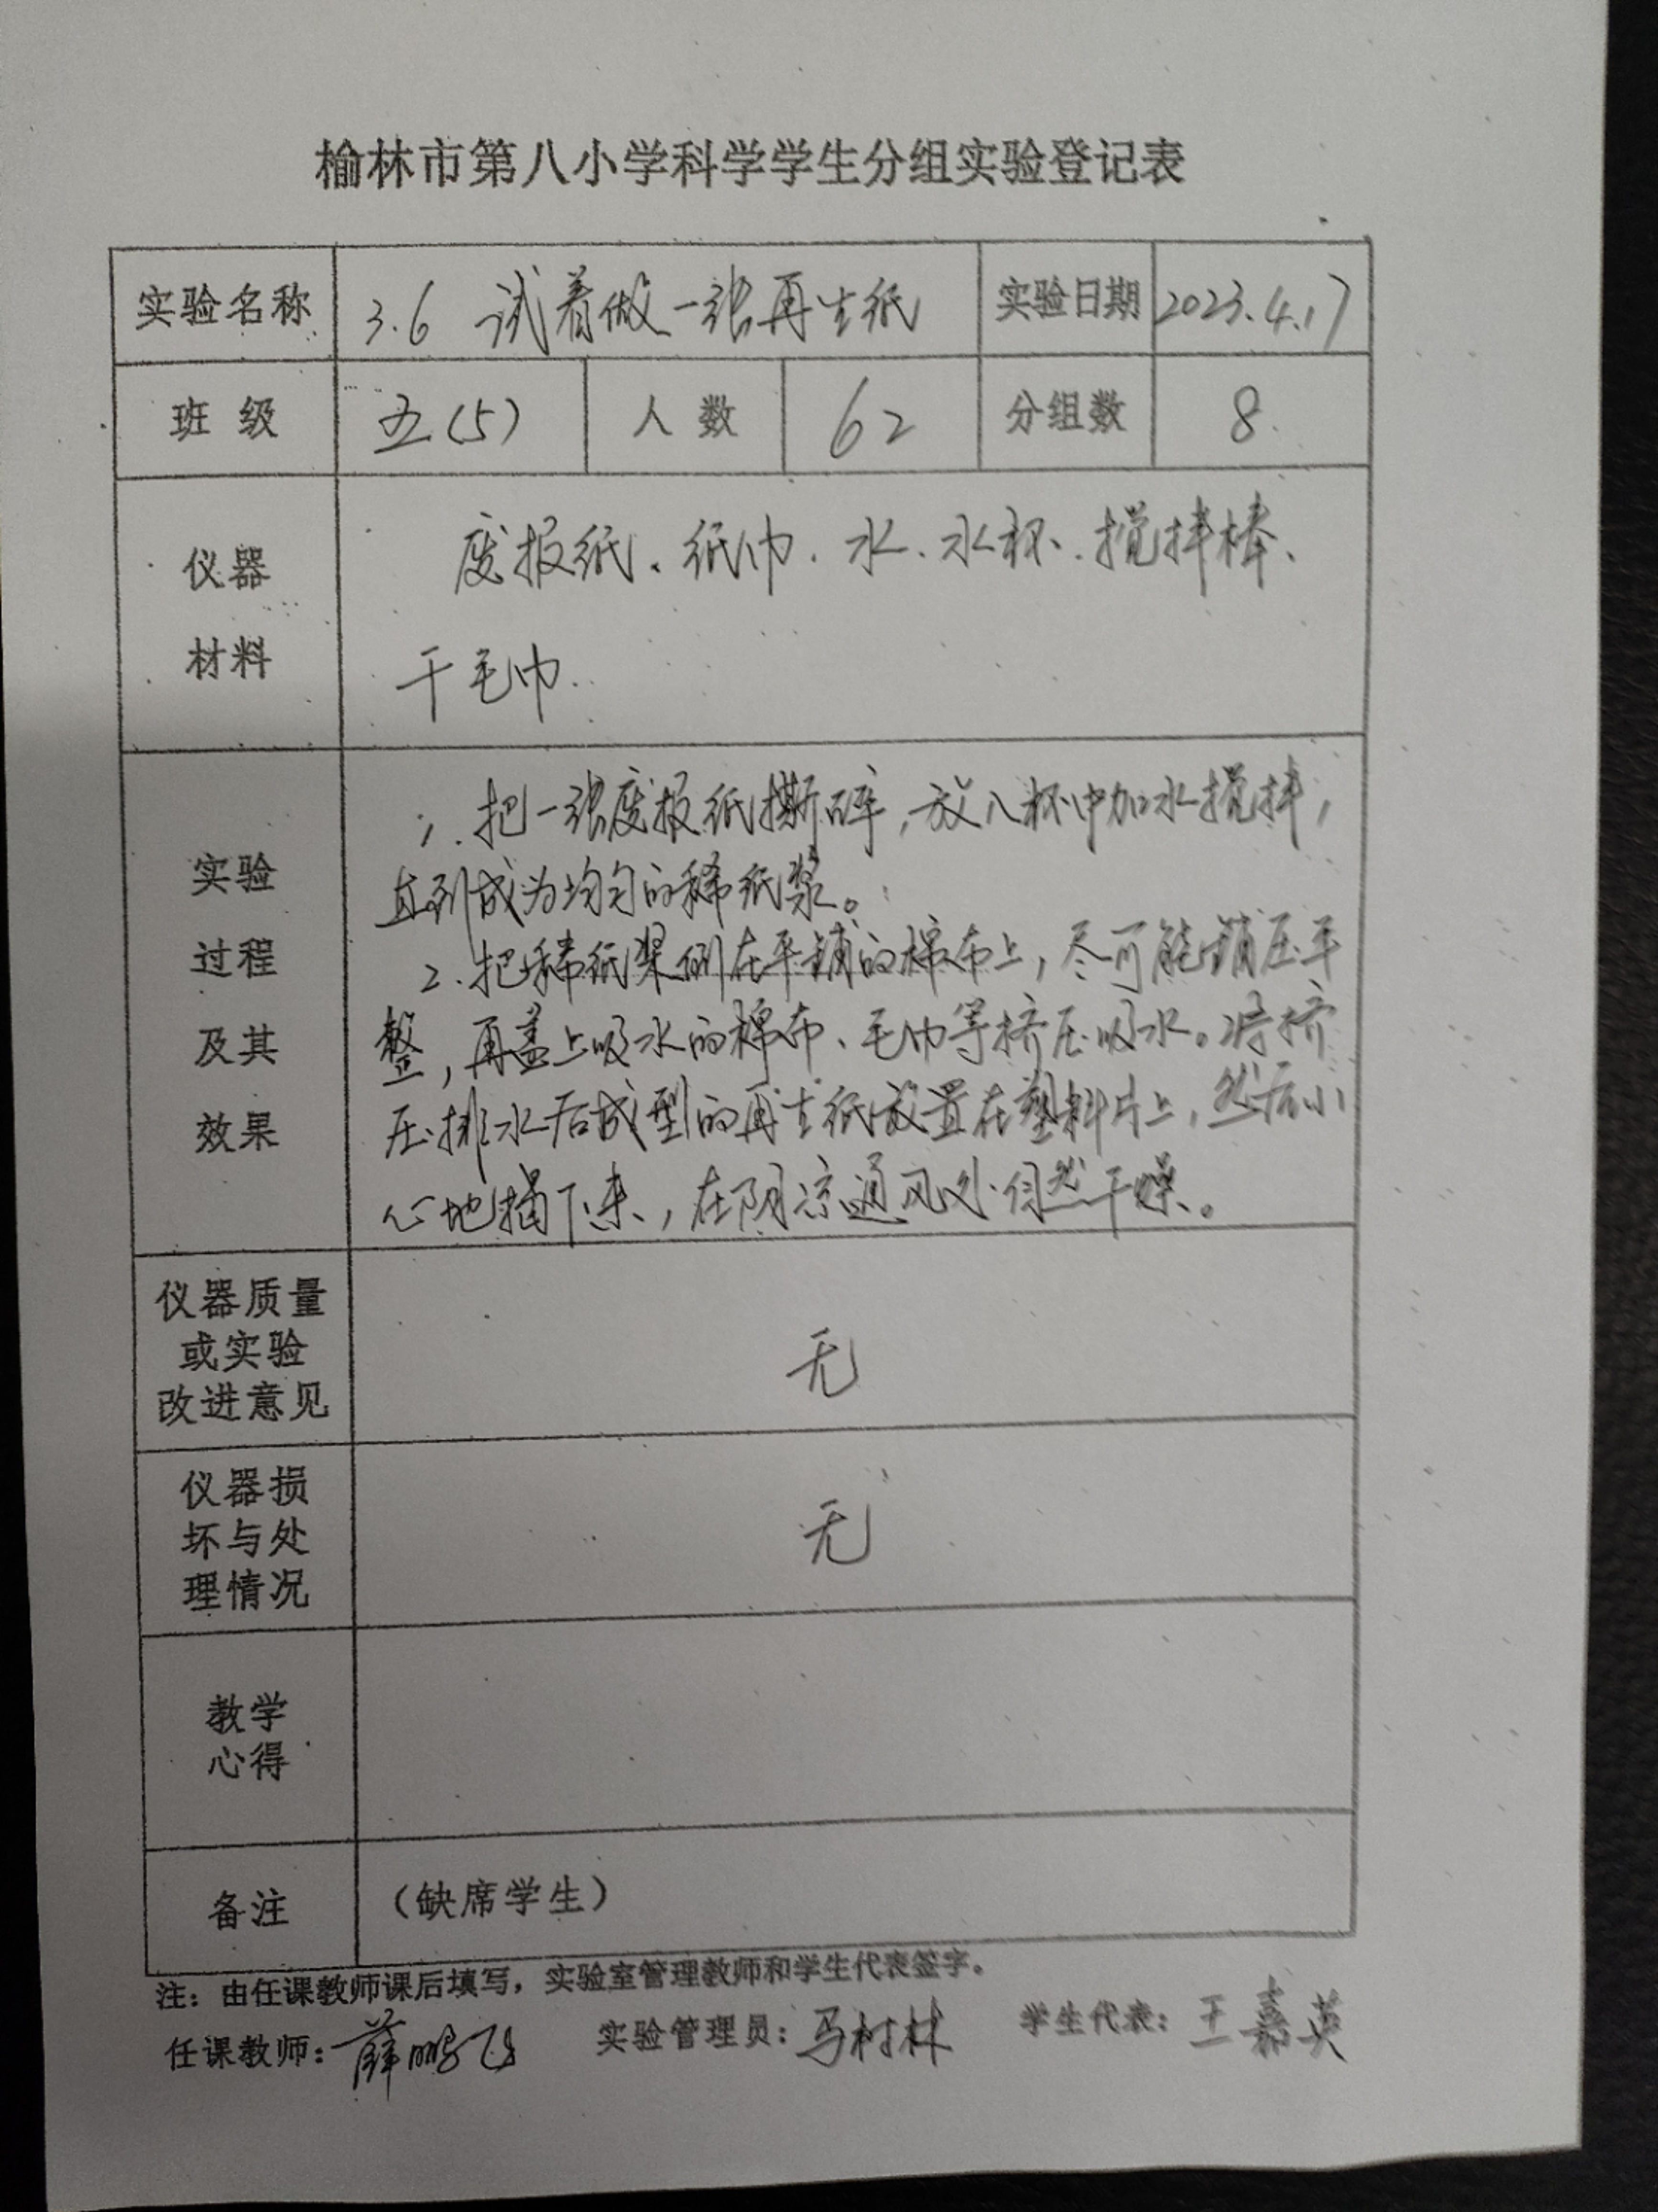 榆林市第八小学科学学生分组实验登记表
实验名称 3.6 试着做一张再生纸 实验日期 2023.4.17
班 级 五(5) 人 数 62 分组数 8
仪器
材料
废报纸、纸巾、水、水杯、搅拌棒、
干毛巾.
实验
过程
及其
效果
1. 把一张废报纸撕碎,放入杯中加水搅拌,
直到成为均匀的稀纸浆。
2. 把稀纸浆倒在平铺的棉布上,尽可能铺压平
整,再盖上吸水的棉布、毛巾等挤压吸水。将挤
压排水后成型的再生纸放置在塑料片上,然后小
心地揭下来,在阴凉通风处自然干燥。
仪器质量
或实验
改进意见
无
仪器损
坏与处
理情况
无
教学
心得
备注 (缺席学生)
注:由任课教师课后填写,实验室管理教师和学生代表签字。
任课教师:薛鹏飞 实验管理员:马树林 学生代表:王嘉英